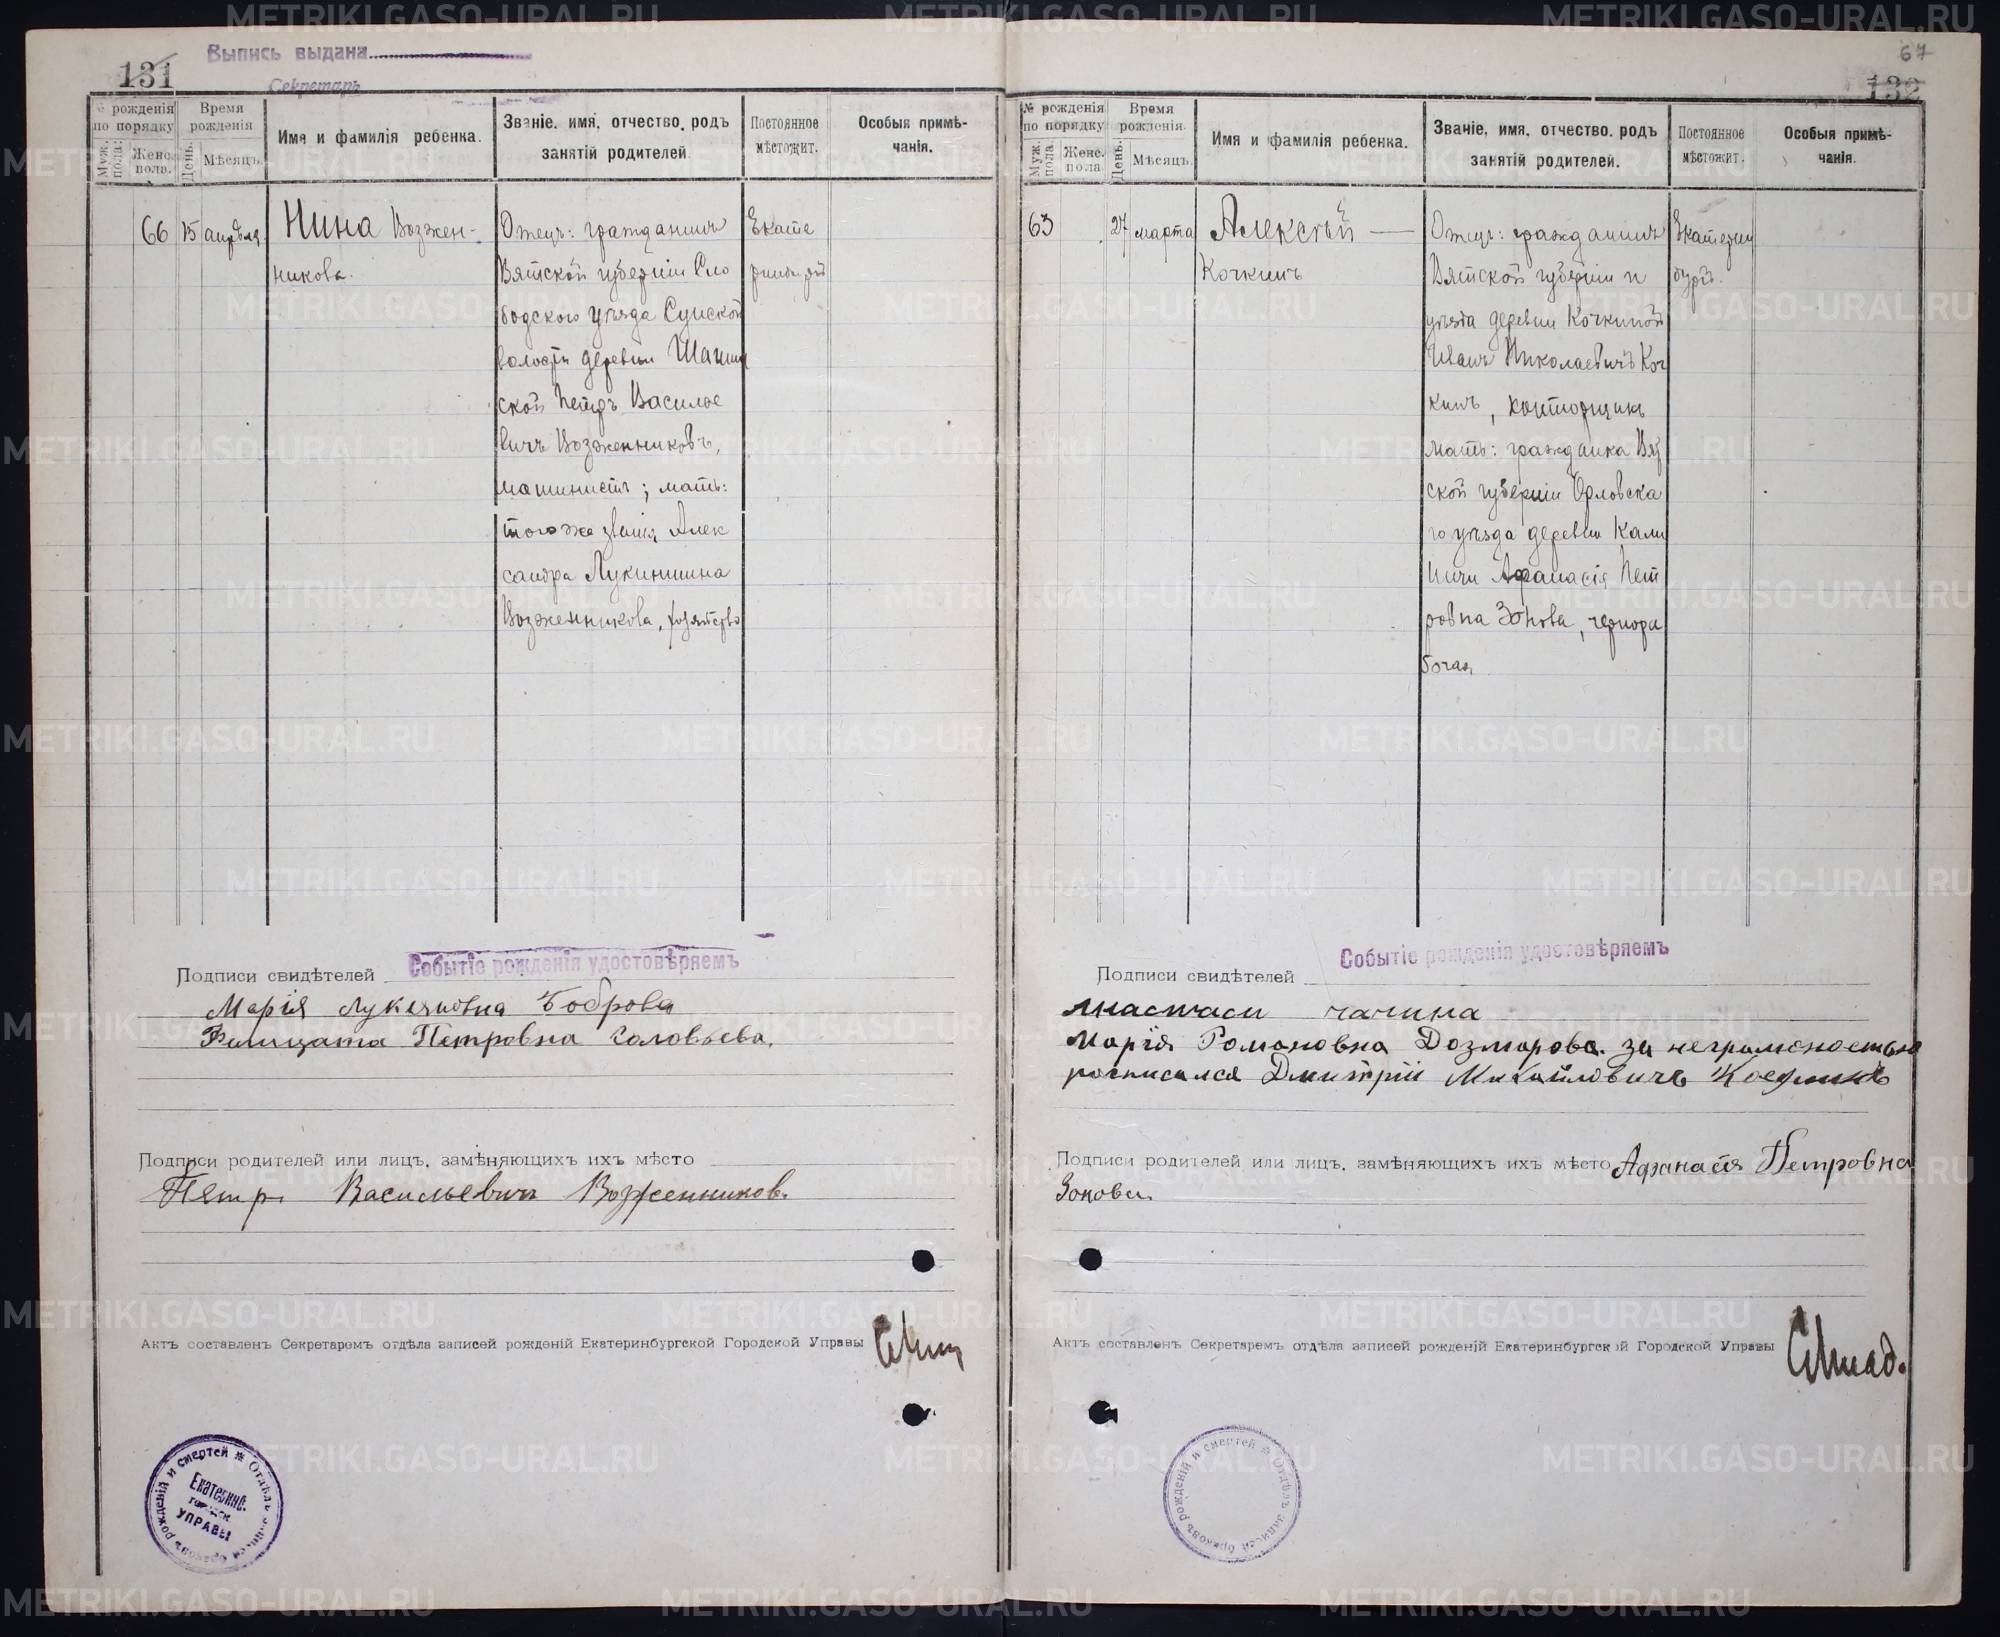 Выпись выдана
131
Секретарь
№ рожденія по порядку
Муж. пола.
Женс. пола.
Время рожденія
День.
Мѣсяцъ.
Имя и фамилія ребенка.
Званіе, имя, отчество, родъ занятій родителей.
Постоянное мѣстожит.
Особыя примѣчанія.
66
15
апрѣля
Нина Возжен-
никова.
Отецъ: гражданинъ
Вятской губерніи Сло
бодского уѣзда Сунской
волости деревни
ской Петръ Василье
вичъ Возженниковъ,
машинистъ; мать:
того же званія Алек
сандра Лукинишна
Возженникова, хозяйство
Екате
ринбургъ
Подписи свидѣтелей
Событіе рожденія удостовѣряемъ
Марія Лукиновна Боброва
Фелицата Петровна Соловьева.
Подписи родителей или лицъ, замѣняющихъ ихъ мѣсто
Петр Васильевич Возженников.
Актъ составленъ Секретаремъ отдѣла записей рожденій Екатеринбургской Городской Управы
Отдѣлъ записей браковъ рожденій и смертей
Екатеринб.
городск
УПРАВЫ
67
132
№ рожденія по порядку
Муж. пола.
Женс. пола
Время рожденія.
День.
Мѣсяцъ.
Имя и фамилія ребенка.
Званіе, имя, отчество, родъ занятій родителей.
Постоянное мѣстожит.
Особыя примѣчанія.
63
27
марта
Алексѣй
Кочкинъ
Отецъ: гражданинъ
Вятской губерніи и
уѣзда деревни Кочкиной
Иванъ Николаевичъ Коч
кинъ, конторщикъ
мать: гражданка Вят
ской губерніи Орловска
го уѣзда деревни Кали
ничи Афанасія Пет
ровна Зонова, чернора
бочая
Екатерин
бургъ.
Подписи свидѣтелей
Событіе рожденія удостовѣряемъ
Анастаси чачина
Марія Романовна Дозморова. за неграмоностью
росписался Дмитрій Михайловичъ
Подписи родителей или лицъ, замѣняющихъ ихъ мѣсто Афанасія Петровна
Зонова.
Актъ составленъ Секретаремъ отдѣла записей рожденій Екатеринбургской Городской Управы
Отдѣлъ записей браковъ рожденій и смертей
METRIKI.GASO-URAL.RU